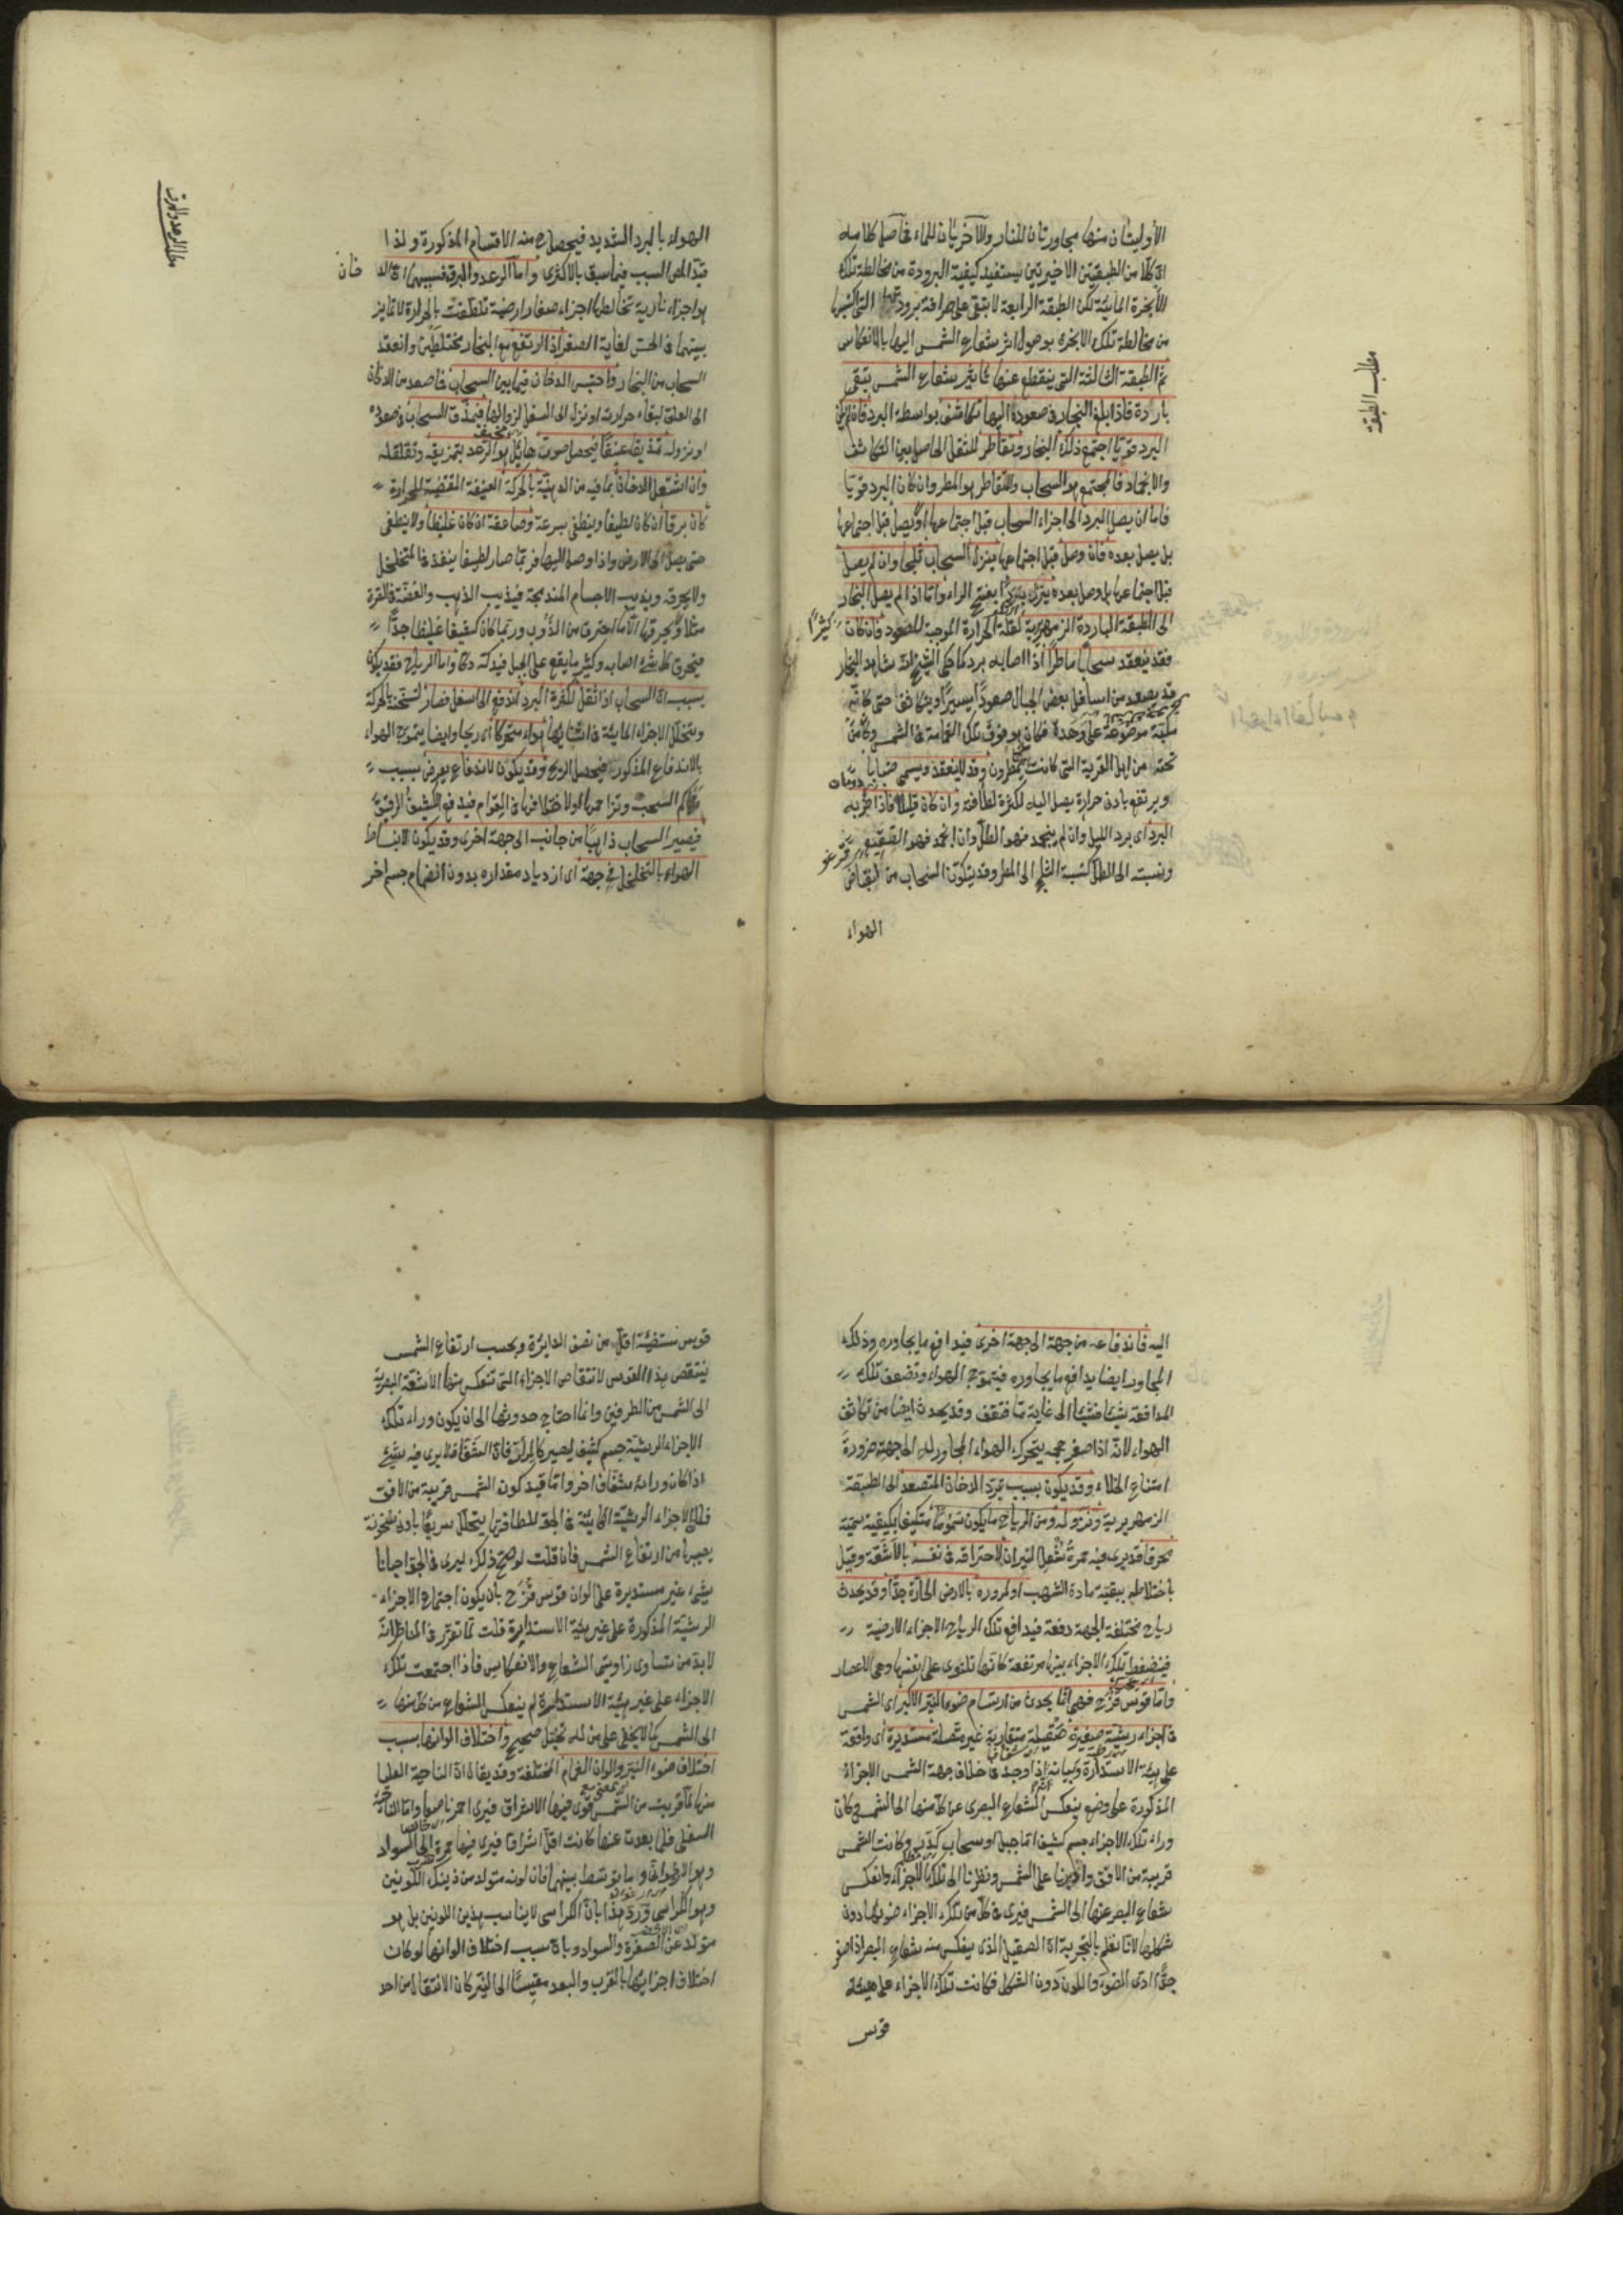 الأوليتان منها مجاورتان للنار والآخريان للماء فحاصل كلامه
ان كلا من الطبقتين الاخيرتين يستفيد كيفية البرودة من مخالطة تلك
الأبخرة المائية لكن الطبقة الرابعة لا تبقى على صرافة برودتها التى اكتسبها
من مخالطة تلك الابخرة بوصول اثر شعاع الشمس اليها بالانعكاس
ثم الطبقة الثالثة التى ينقطع عنها تاثير شعاع الشمس تبقى
باردة فاذا بلغ البخار فى صعوده اليها تكاثف بواسطة البرد فان لم يكن
البرد قويا اجتمع ذلك البخار وتقاطر للثقل الحاصل من التكاثف
والانجماد فالمجتمع هو السحاب والمتقاطر هو المطر وان كان البرد قويا
فاما ان يصل البرد الى اجزاء السحاب قبل اجتماعها او لا يصل قبل اجتماعها
بل يصل بعده فان وصل قبل اجتماعها ينزل السحاب ثلجا وان لم يصل
قبل اجتماعها بل وصل بعده ينزل بردا بفتح الراء واما اذا لم يصل البخار
الى الطبقة الباردة الزمهريرية لقلة الحرارة الموجبة للصعود فان كان كثيرا
فقد ينعقد سحابا ماطرا اذا اصابه برد كما حكى الشيخ انه شاهد البخار
قد يصعد من اسافل بعض الجبال صعودا يسيرا ويتكاثف حتى كانه
مكبة موضوعة على وهدة فكان هو فوق تلك الغمامة فى الشمس وكان من
تحته من اهل القرية التى كانت يمطرون وقد لا ينعقد ويسمى ضبابا
ويرتفع بادنى حرارة يصل اليه لكثرة لطافته وان كان قليلا فاذا ضربه
البرد اى برد الليل وان لم ينجمد فهو الطل وان انجمد فهو الصقيع
ونسبته الى الطل كنسبة الثلج الى المطر وقد يتكون السحاب من انقباض
الهواء
مطلب الطبقة
الهواء بالبرد الشديد فيحصل ح منه الاقسام المذكورة ولذا
قيد المص السبب فيما سبق بالاكثرى واما الرعد والبرق فسببهما ان الد خان
هو اجزاء نارية تخالطها اجزاء صغار ارضية تلطفت بالحرارة لا تمايز
بينهما فى الحس لغاية الصغر اذا ارتفع مع البخار مختلطين وانعقد
السحاب من البخار واحتبس الدخان فيما بين السحاب فما صعد من الدخان
الى العلو لبقاء حرارته او نزل الى السفل لزوالها فيمزق السحاب فى صعوده
او نزوله تمزيقا عنيفا فيحصل صوت هايل هو الرعد بتمزيقه وتقلقله
وان اشتعل الدخان بما فيه من الدهنية بالحركة العنيفة المقتضية للحرارة
كان برقا ان كان لطيفا وينطفى بسرعة وصاعقة ان كان غليظا ولا ينطفى
حتى يصل الى الارض واذا وصل اليها فربما صار لطيفا ينفذ فى المتخلخل
ولا يحرقه ويذيب الاجسام المندمجة فيذيب الذهب والفضة فى الصرة
مثلا ولا يحرقها الا ما احترق من الذوب وربما كان كثيفا غليظا جدا
فيحرق كل شىء اصابه وكثيرا ما يقع على الجبل فيدكه دكا واما الرياح فقد يكون
بسبب ان السحاب اذا ثقل لكثرة البرد اندفع الى اسفل فصار لتسخنه بالحركة
وتتخلل الاجزاء المائية فى اثنائها هواء متحركا اى ريحا وايضا يتموج الهواء
بالاندفاع المذكور فيحصل الريح وقد يكون لاندفاع يعرض بسبب
تراكم السحب وتزاحمها او لاختلافها فى القوام فيدفع الكثيف الرقيق
فيصير السحاب ذاهبا من جانب الى جهة اخرى وقد يكون لانبساط
الهواء بالتخلخل فى جهة اى ازدياد مقداره بدون انضمام جسم اخر
مطلب الرعد والبرق
اليه فاندفاعه من جهة الى جهة اخرى فيدافع ما يجاوره وذلك
المجاور ايضا يدافع ما يجاوره فيتموج الهواء وتضعف تلك
المدافعة شيئا فشيئا الى غاية ما فتقف وقد يحدث ايضا من تكاثف
الهواء لانه اذا صغر حجمه يتحرك الهواء المجاور له الى جهته ضرورة
امتناع الخلاء وقد يكون بسبب تبرد الدخان المتصعد الى الطبقة
الزمهريرية ونزوله ومن الرياح ما يكون سموما متكيفا بكيفية سمية
محرقا قد يرى فيه حمرة شعل النيران لاحتراقه فى نفسه بالاشعة وقيل
باختلاطه ببقية مادة الشهب او لمروره بالارض الحارة جدا وقد يحدث
رياح مختلفة الجهة دفعة فيدافع تلك الرياح الاجزاء الارضية
فينضغط تلك الاجزاء بينها مرتفعة كانها تلتوى على نفسها وهى الاعصار
واما قوس قزح فهى انما يحدث من ارتسام ضوء النير الاكبر اى الشمس
فى اجزاء رشية صغيرة صقيلة متقاربة غير متصلة مستديرة اى واقعة
على هيئة الاستدارة وبيانه اذا وجد فى خلاف جهة الشمس الاجزاء
المذكورة على وضع ينعكس الشعاع البصرى عن كل منها الى الشمس وكان
وراء تلك الاجزاء جسم كثيف اما جبل او سحاب كدر وكانت الشمس
قريبة من الافق وادبرنا على الشمس ونظرنا الى تلك الاجزاء وانعكس
شعاع البصر عنها الى الشمس فيرى فى كل من تلك الاجزاء ضوئها دون
شكلها لانا نعلم بالتجربة ان الصقيل الذى ينعكس منه شعاع البصر اذا صغر
جدا ادى الضوء واللون دون الشكل فكانت تلك الاجزاء على هيئة
قوس
قوس مستضيئة اقل من نصف الدائرة وبحسب ارتفاع الشمس
ينتقص هذا القوس لانتقاص الاجزاء التى تنعكس منها الاشعة البصرية
الى الشمس من الطرفين وانما احتاج حدوثها الى ان يكون وراء تلك
الاجزاء الرشية جسم كثيف ليصير كالمرآة فان الشفاف لا يرى فيه شىء
اذا كان ورائه شفاف اخر واما قيد كون الشمس قريبة من الافق
فلان الاجزاء الرشية المائية فى الجو للطافتها يتحلل سريعا بادنى سخونة
يصيبها من ارتفاع الشمس فان قلت لو صح ذلك ليرى فى الجو احيانا
شىء غير مستديرة على الوان قوس قزح بان يكون اجتماع الاجزاء
الرشية المذكورة على غير هيئة الاستدارة قلت لما تقرر فى المناظر انه
لا بد من تساوى زاويتى الشعاع والانعكاس فاذا اجتمعت تلك
الاجزاء على غير هيئة الاستدارة لم ينعكس الشعاع من كل منها
الى الشمس كما لا يخفى على من له تخيل صحيح واختلاف الوانها بسبب
اختلاف ضوء النير والوان الغمام المختلفة وقد يقال ان الناحية العليا
منها لما قربت من الشمس قوى فيها الاشراق فيرى احمر ناصعا واما الناحية
السفلى فلما بعدت عنها كانت اقل اشراقا فيرى فيها حمرة الى السواد
وهو الارجوانى وما توسط بينهما فان لونه متولد من ذينك اللونين
وهو الكراثى ورد هذا بان الكراثى لا يناسب هذين اللونين بل هو
متولد عن الصفرة والسواد وبان سبب اختلاف الوانها لو كان
اختلاف اجزائها بالقرب والبعد مقيسا الى النير كان الانتقال من احد